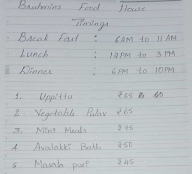 Brahmins Food House
Timings
Break Fast : 6AM to 11AM
Lunch : 12PM to 3PM
Dinner : 6PM to 10PM
1. Uppittu ₹65 60
2 Vegetable Pulav ₹65
3. Mini Meals ₹75
4 Avalakki Bath ₹50
5 Masala puri ₹45